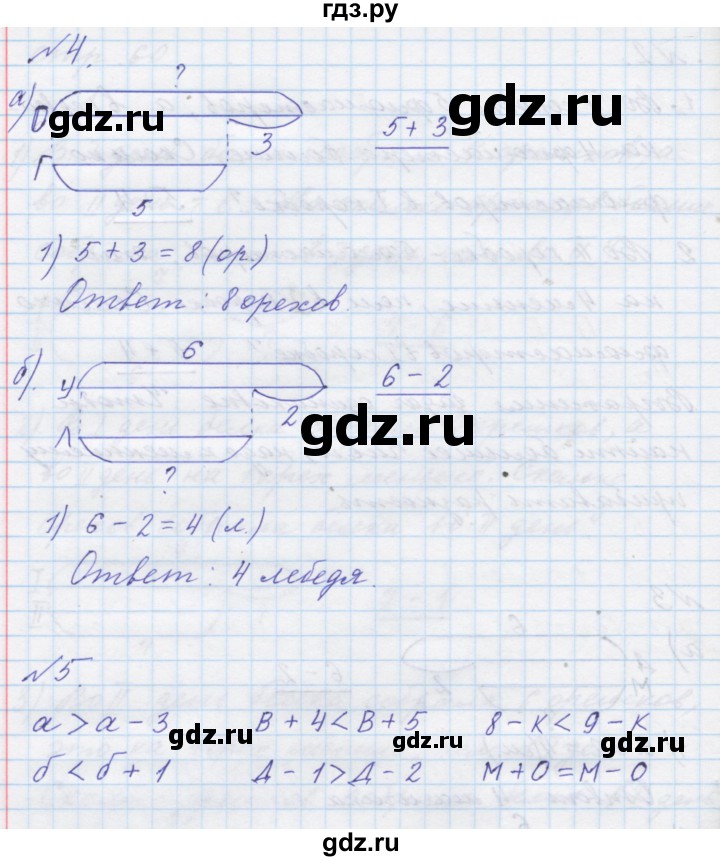 гдз.ру
№4.
а) ?
О
3
5 + 3
Г
5
1) 5 + 3 = 8 (ор.)
Ответ: 8 орехов.
б). 6
У
2
6 - 2
Л
?
1) 6 - 2 = 4 (л.)
Ответ: 4 лебедя.
№5.
а > а - 3 в + 4 < в + 5 8 - к < 9 - к
б < б + 1 д - 1 > д - 2 м + 0 = м - 0
gdz.ru
gdz.ru
gdz.ru
gdz.ru
gdz.ru
gdz.ru
gdz.ru
gdz.ru
gdz.ru
gdz.ru
gdz.ru